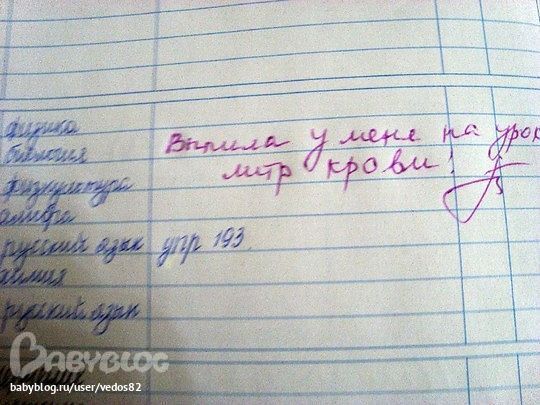 физика
биология
физкультура
алгебра
русский язык упр 193
химия
русский язык
Выпила у меня на урок
литр крови!
BABYBLOG
babyblog.ru/user/vedos82